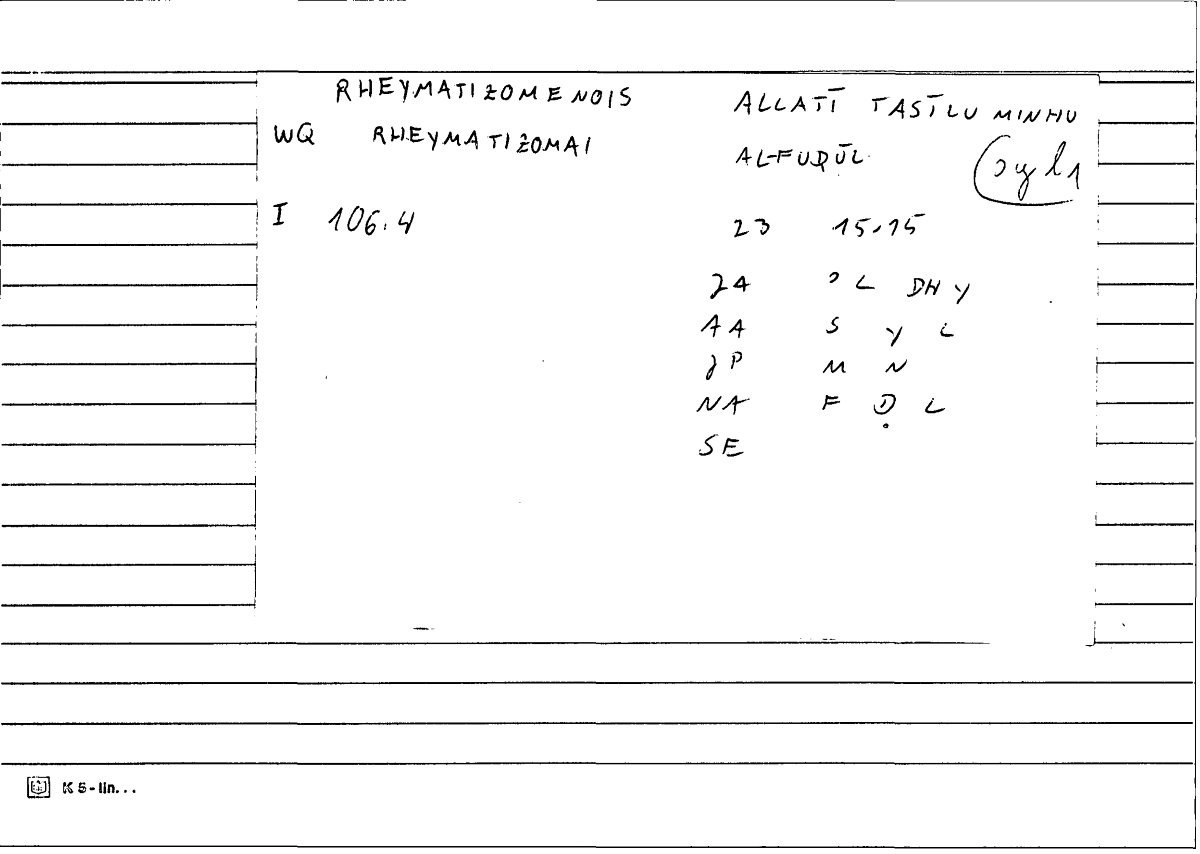 RHEYMATIZOMENOIS ALLATĪ TASĪLU MINHU
WQ RHEYMATIZOMAI AL-FUḌŪL
I 106.4 23 15.15
L DHY
AA S Y L
P M N
NA F Ḍ L
SE
K 5 - lin...